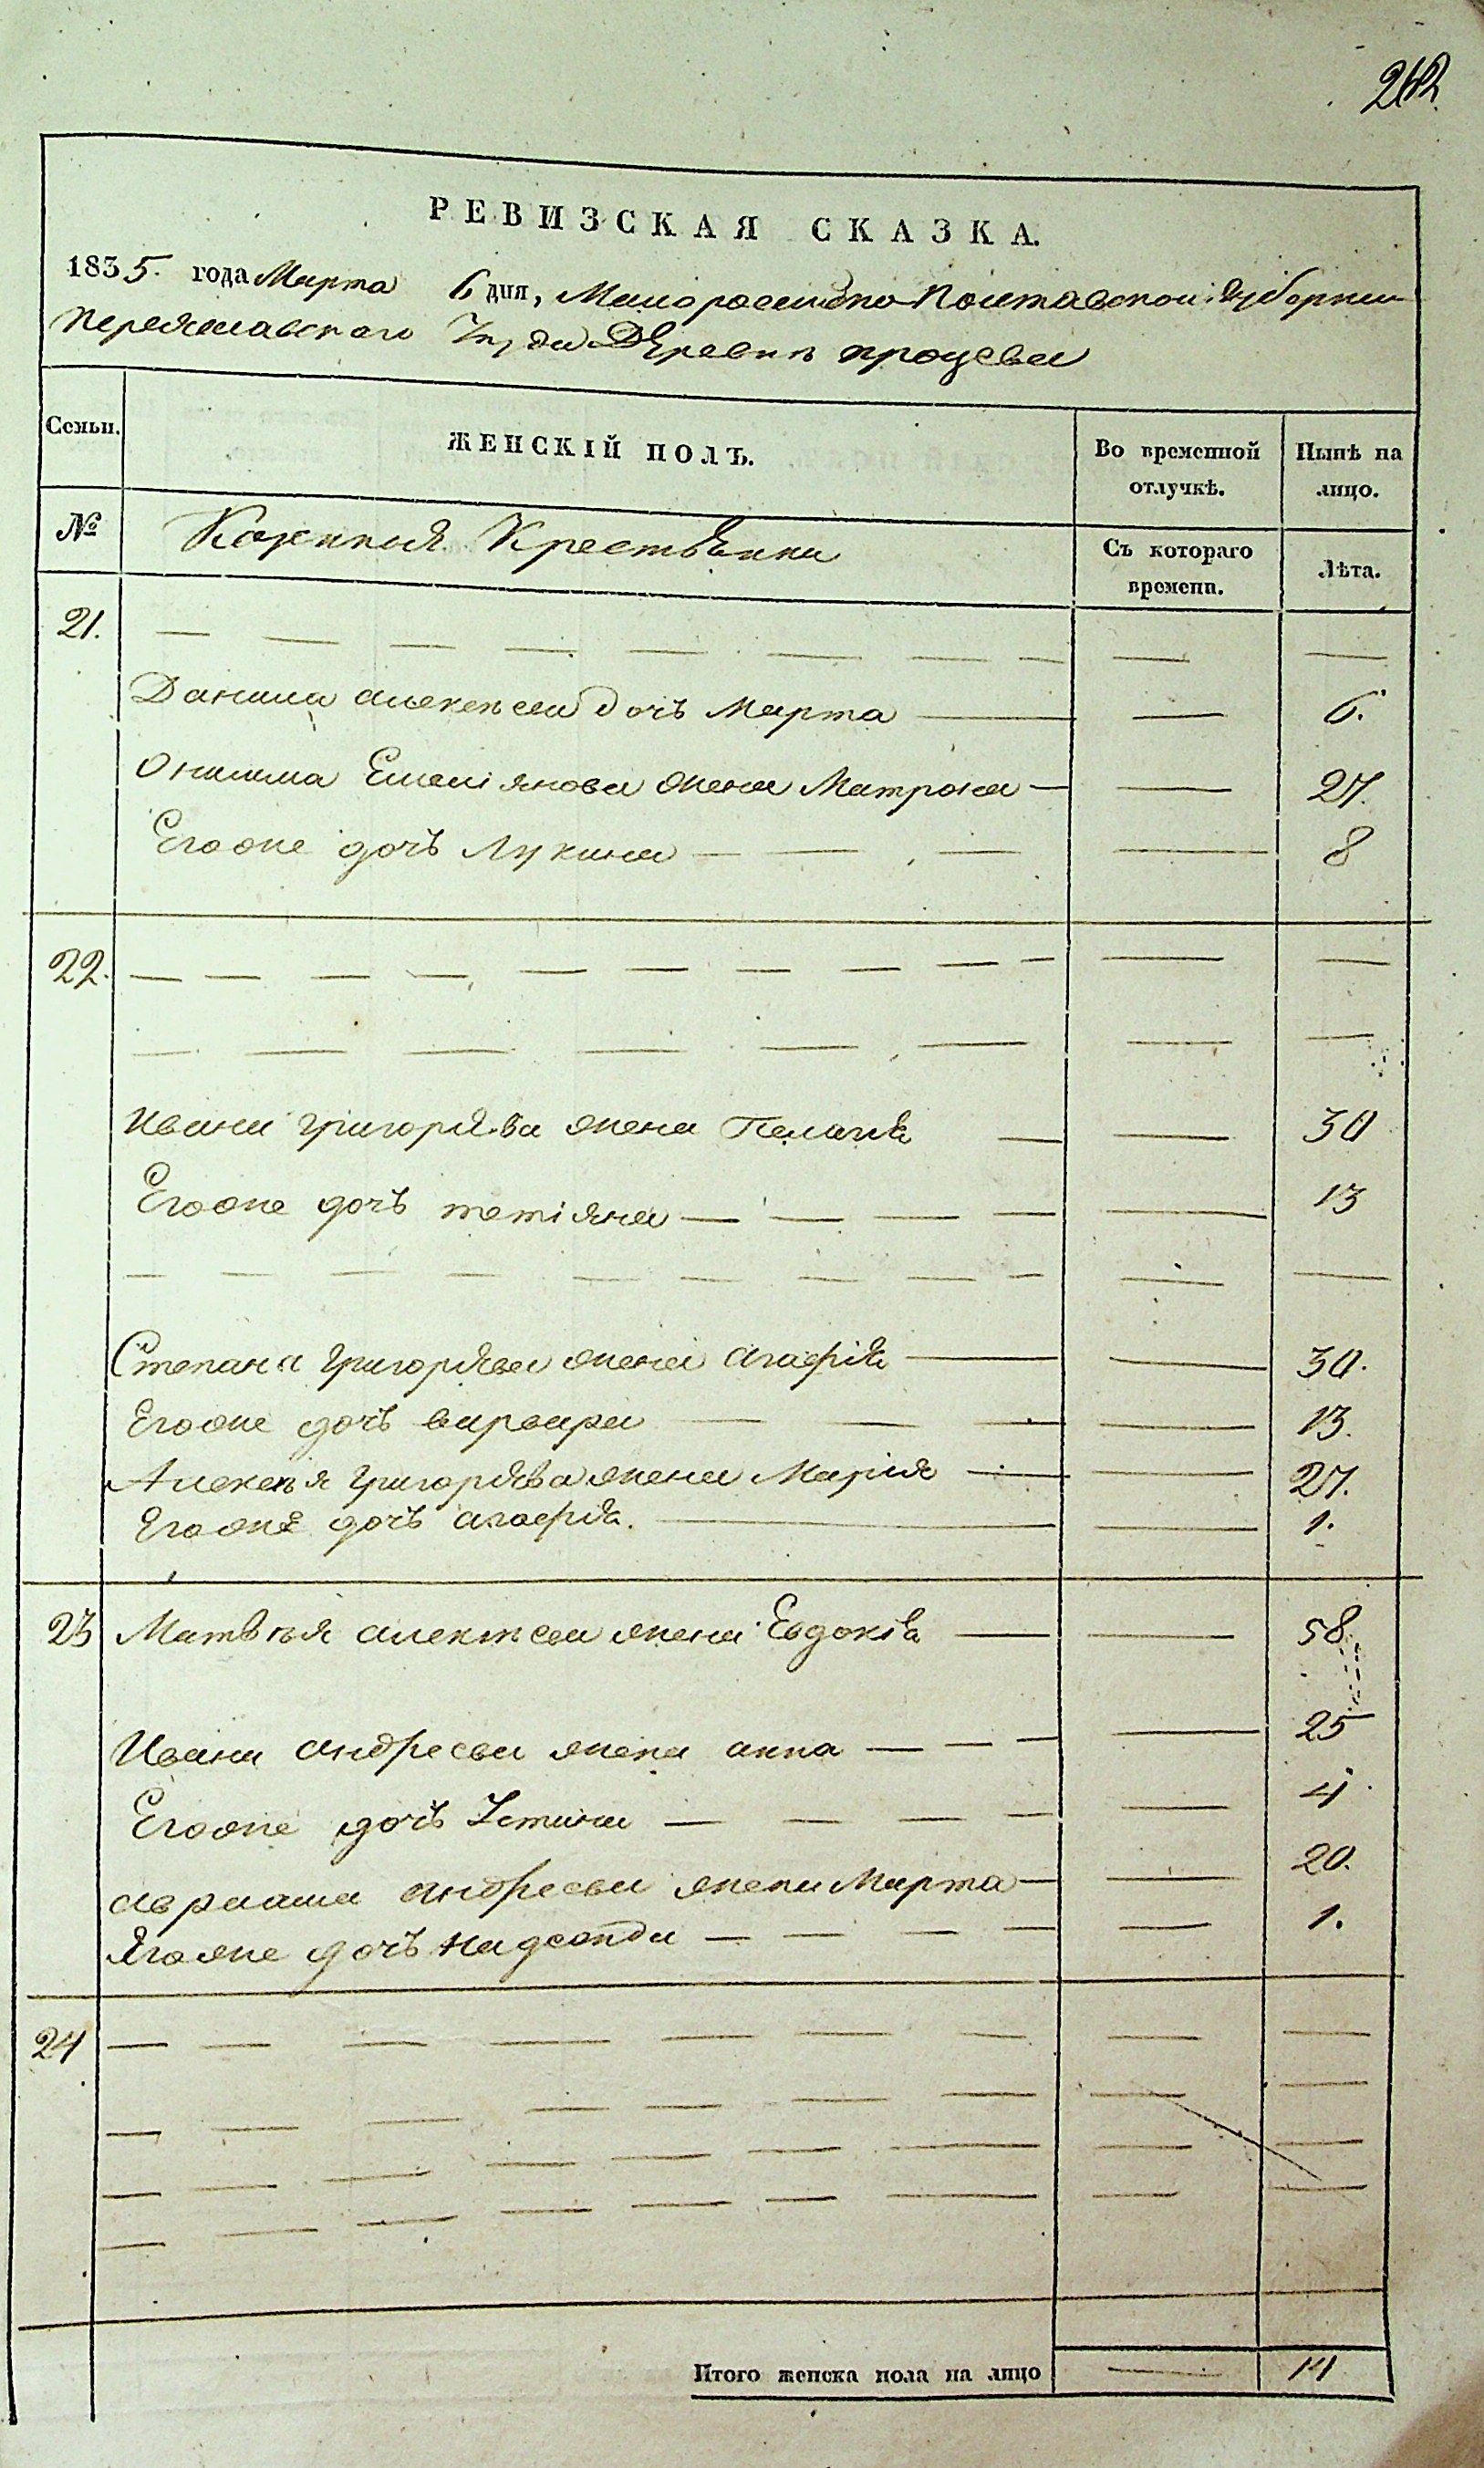 212
РЕВИЗСКАЯ СКАЗКА.
1835. года Марта 6 дня, Малороссийско Полтавской Губернии
Переяславского Уезда Деревни процева
Семьи. ЖЕНСКІЙ ПОЛЪ. Во временной отлучкѣ. Нынѣ на лицо.
№ Крестьянки Съ котораго времени. Лѣта.
21. — — — — — — — — — —
Данила алексѣева дочъ Марта — — 6.
Онисима Емеліянова жена Матрона — — 27.
Егоже дочъ Лукина — — — — 8
22. — — — — — — — — — — — —
— — — — — — — —
Ивана григорява жена Пелагия — — 30
Егоже дочъ тетіяна — — — — — 13
— — — — — — — — — — —
Степана григорява жена агафія — — 30.
Егоже дочъ варвара — — — — 13.
Алексѣя григорява жена Марія — — 27.
Егоже дочъ агафія. — — 1.
23 Матвѣя алексѣева жена Евдокія — — 58.
Ивана андреева жена анна — — — — 25
Егоже дочъ Устина — — — — 4.
авраама андреева жена Марта — — 20.
Ягоже дочъ надежда — — — — — 1.
24 — — — — — — — — —
— — — — — — — —
— — — — — — — —
— — — — — — — —
Итого женска пола на лицо — 14